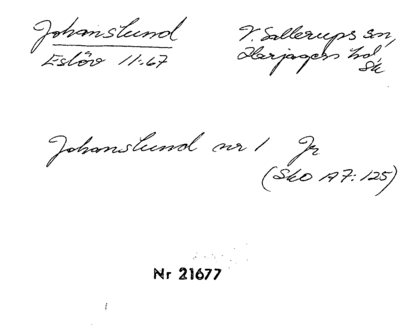 Johanslund
V. Sallerups sn,
Eslöv 11.67
Harjagers hd,
Sk
Johanslund nr 1 Jr
(SkO A7:125)
Nr 21677